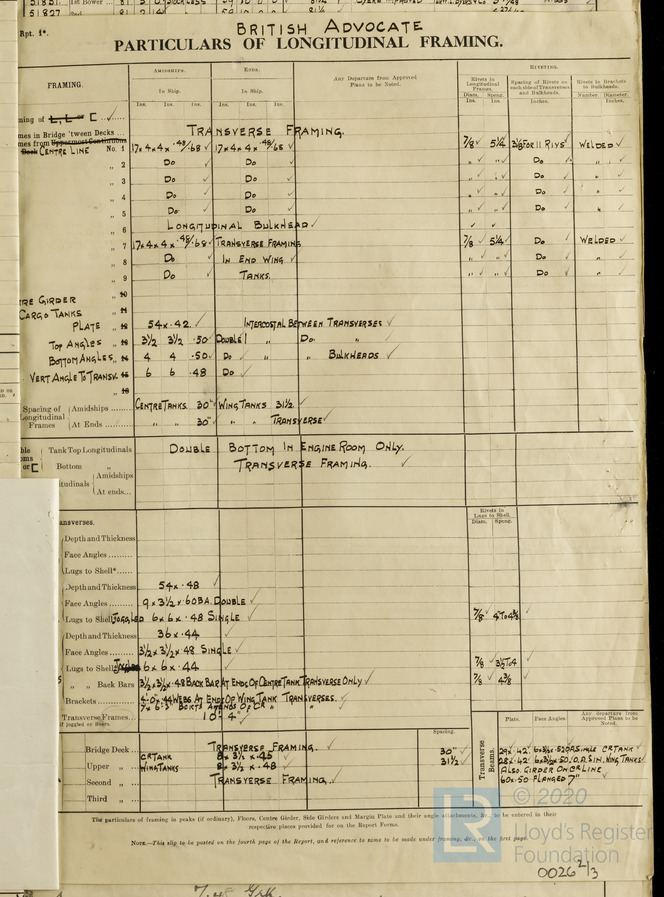 BRITISH ADVOCATE
Rpt. 1*.
PARTICULARS OF LONGITUDINAL FRAMING.
FRAMING.
AMIDSHIPS.
In Ship.
Ins. Ins. Ins.
ENDS.
In Ship.
Ins. Ins. Ins.
Any Departure from Approved Plans to be Noted.
RIVETING.
Rivets in Longitudinal Frames.
Diam. Spcng.
Ins. Ins.
Spacing of Rivets on each side of Transverses and Bulkheads.
Inches.
Rivets in Brackets to Bulkheads.
Number. Diameter.
Inches.
ming of L, L or [ ... ✓
mes in Bridge 'tween Decks ... TRANSVERSE FRAMING.
mes from Uppermost Continuous
Deck CENTRE LINE No. 1 17×4×4×.48/.68 ✓ 17×4×4×.48/68 ✓ 7/8 ✓ 5¼ 3⅛ FOR 11 RIVS ✓ WELDED ✓
„ 2 Do ✓ Do ✓ „ „ ✓ Do ✓ „ ✓
„ 3 Do ✓ Do ✓ „ „ ✓ Do ✓ „ ✓
„ 4 Do ✓ Do ✓ „ „ ✓ Do ✓ „ ✓
„ 5 Do ✓ Do ✓ „ „ ✓ Do ✓ „ ✓
„ 6 LONGITUDINAL BULKHEAD ✓ ✓ ✓
„ 7 17×4×4×.48/.68 ✓ TRANSVERSE FRAMING 7/8 ✓ 5¼ ✓ Do ✓ WELDED ✓
„ 8 Do ✓ IN END WING ✓ „ „ ✓ Do ✓ „ ✓
„ 9 Do ✓ TANKS. „ „ ✓ Do ✓ „ ✓
„ 10
TRE GIRDER
CARGO TANKS „ 11
PLATE „ 12 54×.42. ✓ INTERCOSTAL BETWEEN TRANSVERSES ✓
TOP ANGLES „ 13 3½ 3½ .50 DOUBLE „ Do. „ ✓
BOTTOM ANGLES „ 14 4 4 .50 ✓ Do ✓ „ „ BULKHEADS ✓
VERT ANGLE TO TRANSV. „ 15 6 6 .48 Do ✓
„ 16
Spacing of Longitudinal Frames
Amidships ...... CENTRE TANKS 30" WING TANKS 31½
At Ends ...... „ „ 30" „ „ TRANSVERSE ✓
Tank Top Longitudinals DOUBLE BOTTOM IN ENGINE ROOM ONLY.
or [ Bottom „ TRANSVERSE FRAMING. ✓
itudinals Amidships
At ends...
Rivets in Lugs to Shell.
Diam. Spcng.
ansverses.
Depth and Thickness
Face Angles .........
Lugs to Shell* ......
Depth and Thickness 54×.48 ✓
Face Angles ...... 9×3½×.60 BA. DOUBLE ✓
Lugs to Shell JOGGLED 6×6×.48 SINGLE ✓ 7/8 ✓ 4 TO 4⅜
Depth and Thickness 36×.44 ✓
Face Angles ...... 3½×3½×.48 SINGLE ✓
Lugs to Shell 6×6×.44 ✓ 7/8 ✓ 3½ TO 4
„ „ Back Bars 3½×3½×.48 BACK BAR AT ENDS OF CENTRE TANK TRANSVERSE ONLY ✓ 7/8 ✓ 4⅜ ✓
Brackets ......... 4'-0" .44 WEBS AT ENDS OF WING TANK TRANSVERSES. ✓
Transverse Frames... 10'-4" ✓
if joggled or liners.
Spacing.
Bridge Deck ... TRANSVERSE FRAMING. ✓ 30" ✓
Upper „ ... CR TANK 8×3½×.45 ✓
WING TANKS 8×3½×.48 ✓ 31½ ✓
Second „ ... TRANSVERSE FRAMING. ✓
Third „ ...
Transverse Beams.
Plate. Face Angles. Any departure from Approved Plans to be Noted.
ALSO GIRDER ON CR LINE
60×.50 FLANGED 7"
The particulars of framing in peaks (if ordinary), Floors, Centre Girder, Side Girders and Margin Plate and their angle attachments, &c., to be entered in their
respective places provided for on the Report Forms.
NOTE.—This slip to be posted on the fourth page of the Report, and reference to same to be made under framing, &c., on the first page.
© 2020
Lloyd's Register
Foundation
0026 2/3